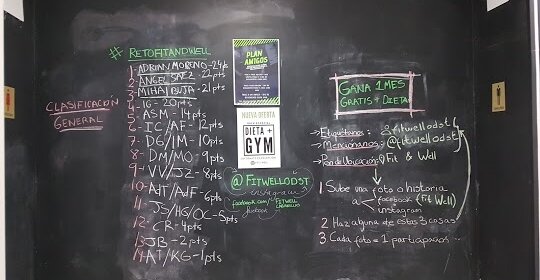 # RETOFITANDWELL
CLASIFICACIÓN
GENERAL
1- ADRIAN MORENO - 24pts
2- ANGEL SAEZ - 22pts
3- MIHAI BUJA - 21pts
4- IG - 20pts
5- ASM - 14pts
6- IC/AF - 12pts
7- DG/IM - 10pts
8- DM/MO - 9pts
9- VV/JZ - 8pts
10- AJT/AJF - 6pts
11- JS/HG/OC - 5pts
12- CR - 4pts
13- JB - 2pts
14- AT/KG - 1pts
PLAN
AMIGOS
NUEVA OFERTA
DIETA +
GYM
@FITWELLODST
instagram
facebook
GANA 1 MES
GRATIS + DIETA
→ Etiquétanos: @fitwellodst
→ Mencionanos: @fitwellodst
→ Pon de Ubicación: Fit & Well
1 Sube una foto o historia
a facebook (Fit Well)
instagram
2 Haz alguna de estas 3 cosas
3 Cada foto = 1 participación